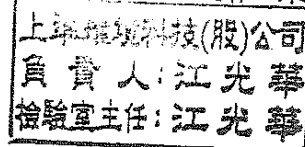 上準環境科技(股)公司
負責人:江光華
檢驗室主任:江光華